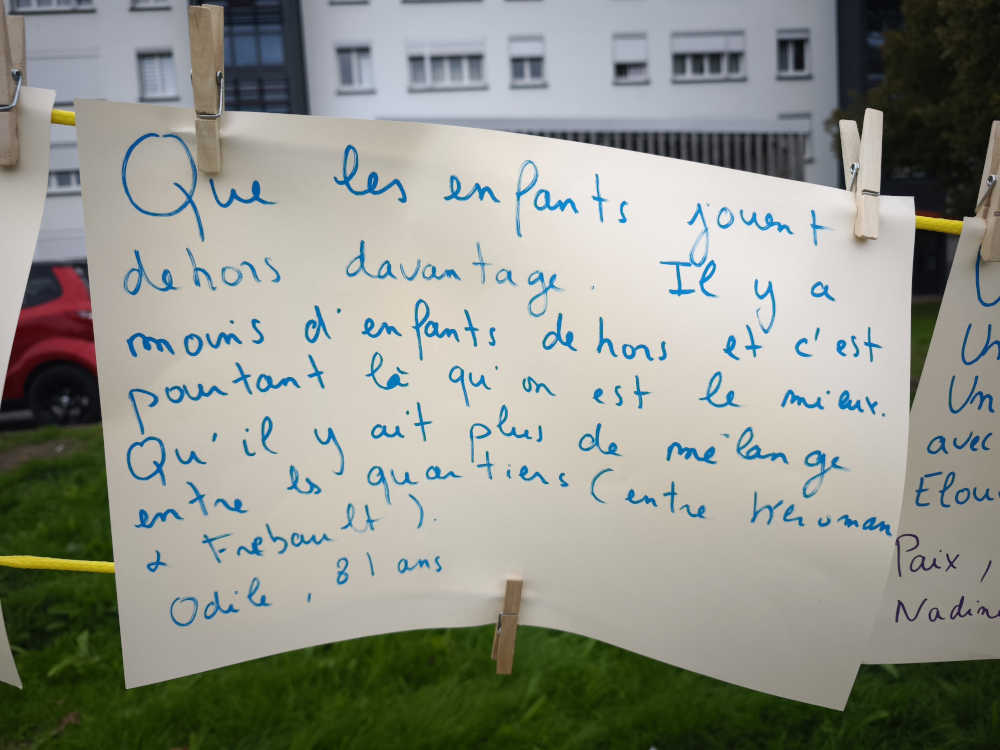 Que les enfants jouent
dehors davantage. Il y a
moins d'enfants dehors et c'est
pourtant là qu'on est le mieux.
Qu'il y ait plus de mélange
entre les quartiers (entre
& Frebault).
Odile, 81 ans
Un
Un
avec
Elou
Paix,
Nadine